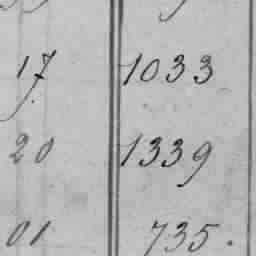 17 1033
20 1339
01 735.